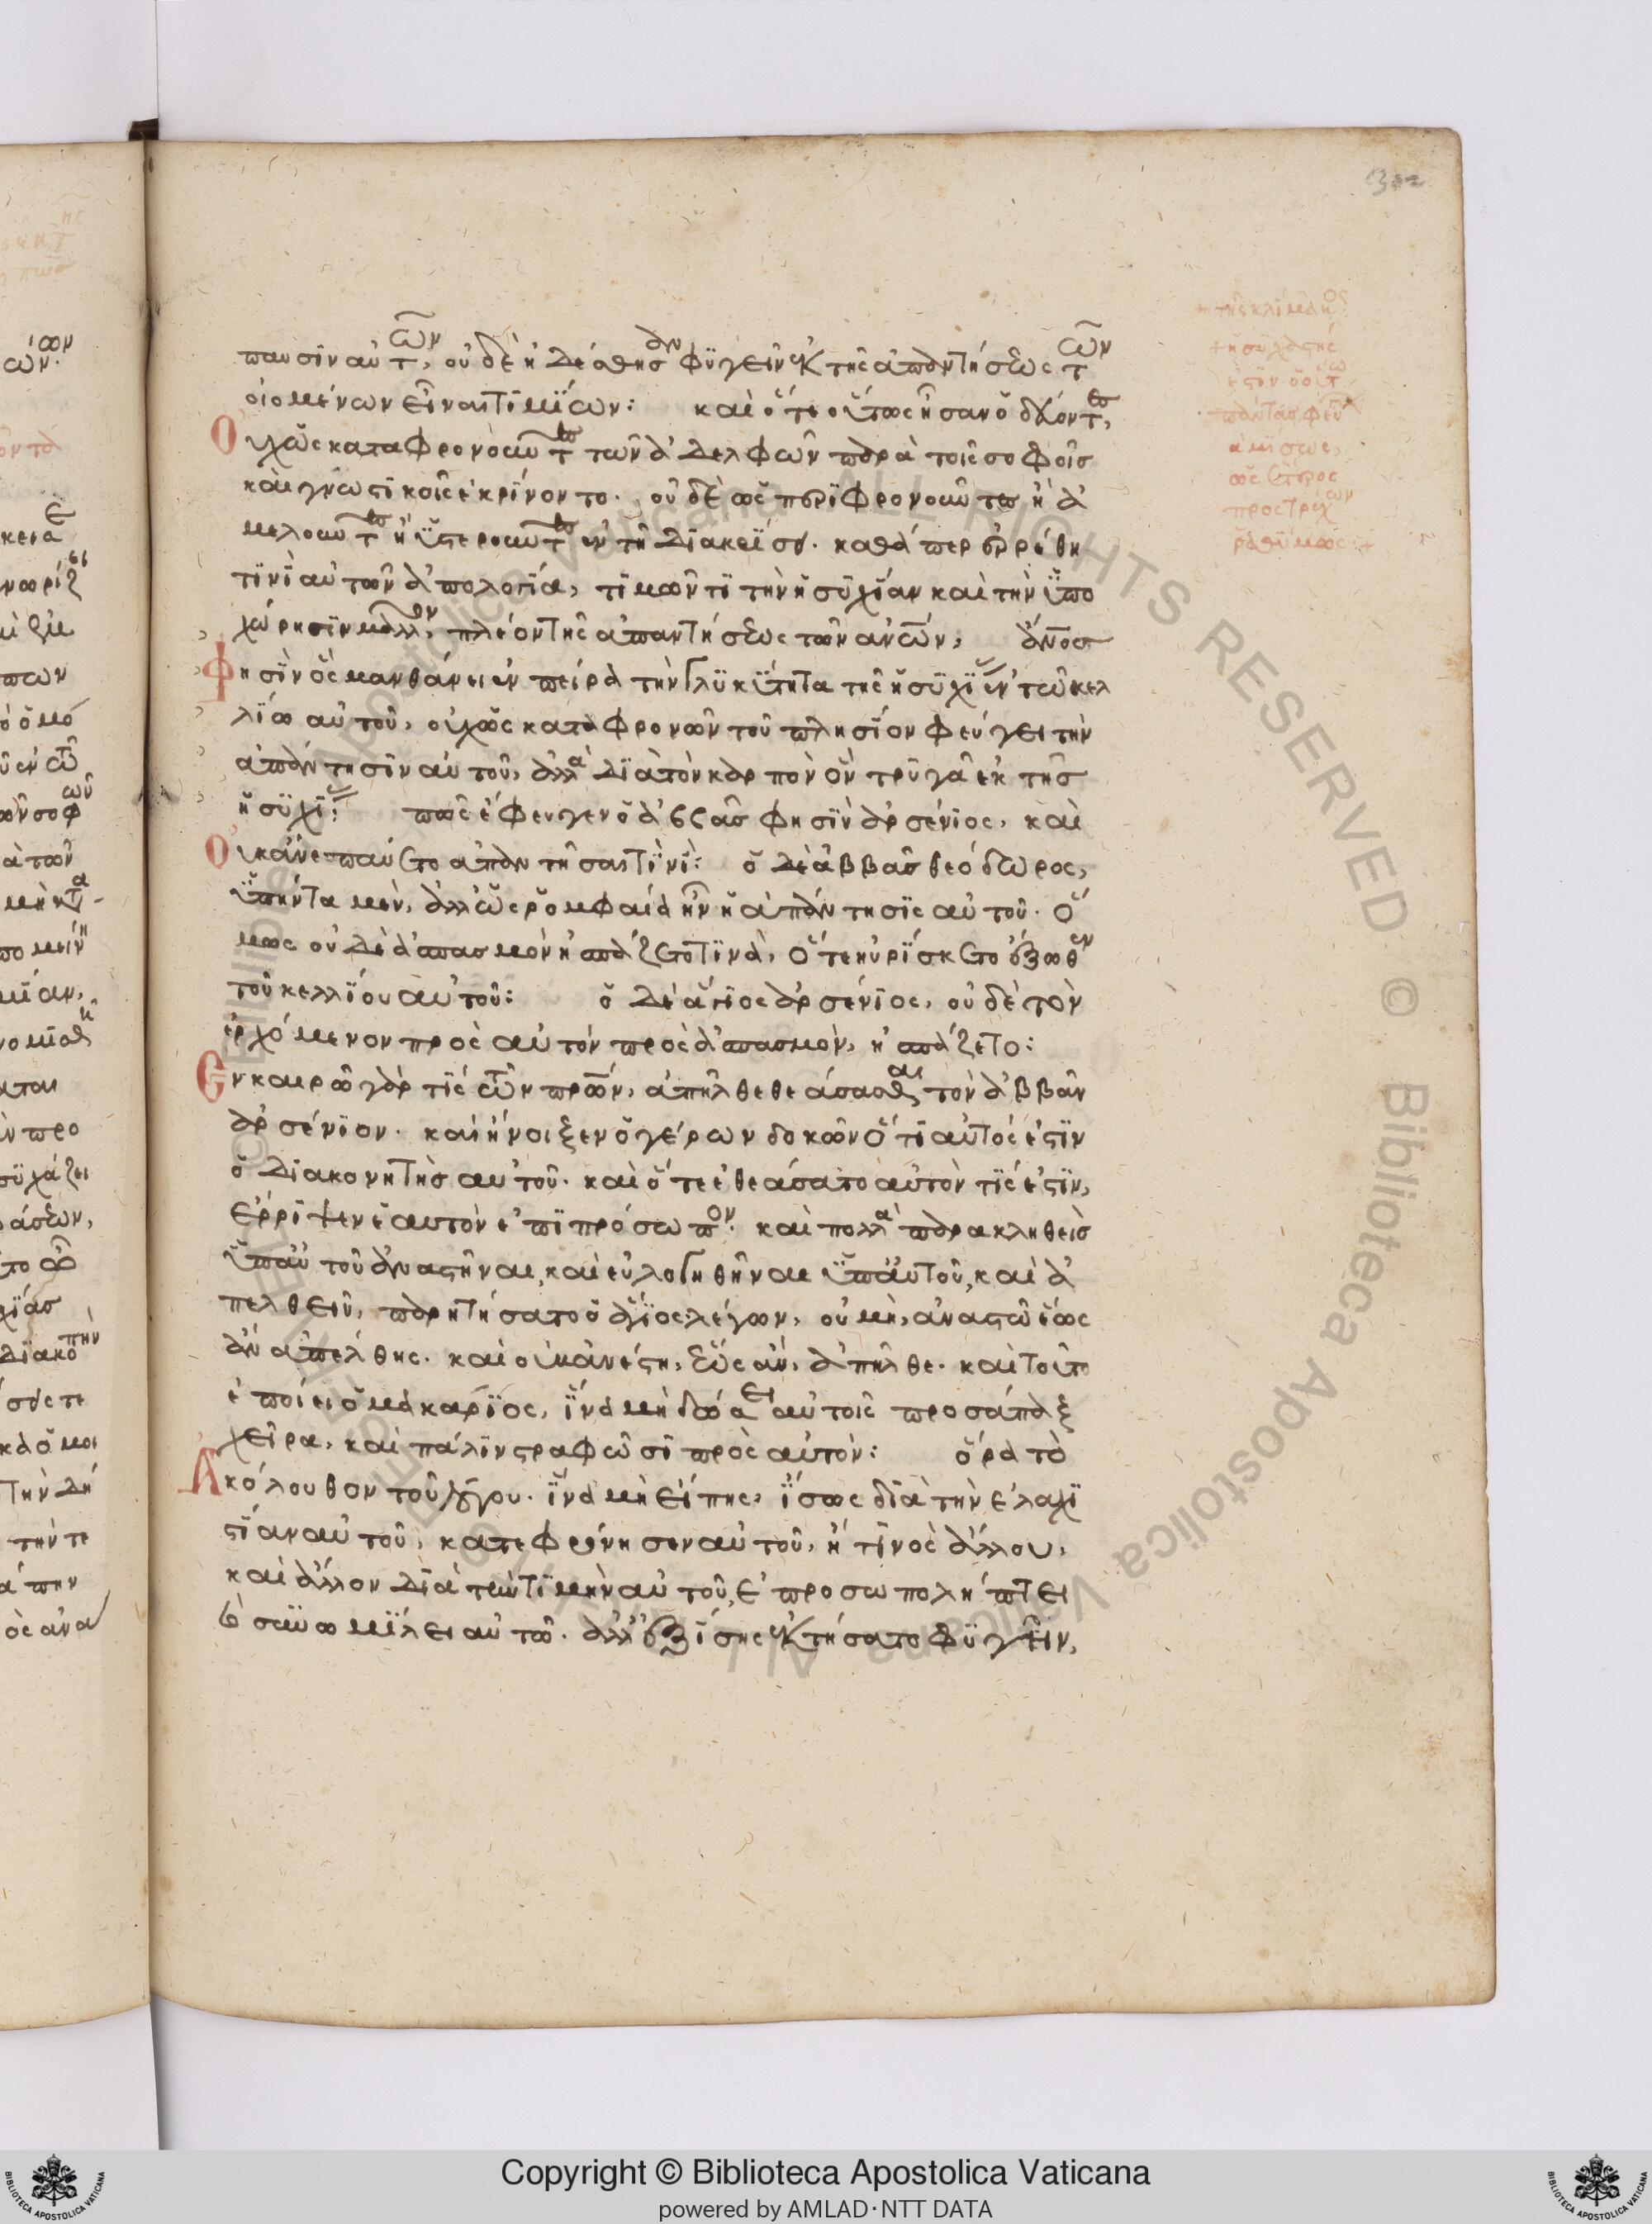 παυσιν αὐτῶν, οὐδὲ ἠδέσθησαν φυγεῖν ἐκ τῆς ἀπαντήσεως τῶν
οἰομένων εἶναι τιμίων: καὶ ὅτε οὕτως ἦσαν ἄδοντες,
Οὐχ ὡς καταφρονοῦντες τῶν ἀδελφῶν παρὰ τοῖς σοφοῖς
καὶ γνωστικοῖς ἐκρίνοντο. οὐδὲ ὡς περιφρονοῦντες ἢ ἀ
μελοῦντες ἢ ὑστεροῦντες ἐν τῇ διακρίσει. καθάπερ ἐρρέθη
τινὶ αὐτῶν ἀπολογία, τιμῶντι τὴν ἡσυχίαν καὶ τὴν ὑπο
χώρησιν μᾶλλον, πλέον τῆς ἀπαντήσεως τῶν ἀνῶν, ἄνος
Φησὶν ὃς μανθάνει ἐν πείρα τὴν γλυκύτητα τῆς ἡσυχίας ἐν τῶ κελ
λίω αὐτοῦ, οὐχ ὡς καταφρονῶν τοῦ πλησίον φεύγει τὴν
ἀπάντησιν αὐτοῦ, ἀλλὰ διὰ τὸν καρπὸν ὃν τρυγᾶ ἐκ τῆς
ἡσυχίας: πῶς ἔφευγεν ὁ ἀββᾶς φησὶν ἀρσένιος, καὶ
Οὐκ ἀνεπαύετο ἀπαντῆσαι τινί: ὁ δὲ ἀββᾶς θεόδωρος,
ὑπήντα μὲν, ἀλλ' ὡς ῥομφαία ἦν ἡ ἀπάντησις αὐτοῦ. ὅ
μως οὐδὲ ἀσπασμὸν ἠσπάζετο τινὰ, ὅτε ηὑρίσκετο ἔξωθεν
τοῦ κελλίου αὐτοῦ: ὁ δὲ ἅγιος ἀρσένιος, οὐδὲ τὸν
ἐρχόμενον πρὸς αὐτόν πρὸς ἀσπασμὸν, ἠσπάζετο:
Ἐν καιρῶ γάρ τις τῶν πρῶν, ἀπῆλθε θεάσασθαι τὸν ἀββᾶν
ἀρσένιον. καὶ ἤνοιξεν ὁ γέρων δοκῶν ὅτι αὐτός ἐστιν
ὁ διακονητὴς αὐτοῦ. καὶ ὅτε ἐθεάσατο αὐτὸν τίς ἐστιν,
ἔρριψεν ἑαυτὸν ἐπὶ πρόσωπον. καὶ πολλὰ παρακληθεὶς
ὑπ' αὐτοῦ ἀναστῆναι, καὶ εὐλογηθῆναι ὑπ' αὐτοῦ, καὶ ἀ
πελθεῖν, παρητήσατο ὁ ἅγιος λέγων, οὐ μὴ ἀναστῶ ἕως
ἂν ἀπέλθης. καὶ οὐκ ἀνέστη, ἕως ἂν ἀπῆλθε. καὶ τοῦτο
ἐποίει ὁ μακάριος, ἵνα μὴ δώσει αὐτοῖς πρὸς ἅπαξ
χεῖρα, καὶ πάλιν στραφῶσι πρὸς αὐτόν: ὅρα τὸ
Ἀκόλουθον τοῦ λόγου. ἵνα μὴ εἴπης, ἴσως διὰ τὴν ἐλαχι
στίαν αὐτοῦ, κατεφρόνησεν αὐτοῦ, ἤ τινος ἄλλου,
καὶ ἄλλον διὰ τὴν τιμὴν αὐτοῦ, ἐπροσωπολήπτει
ἐφ' ᾧ ὁμίλει αὐτῶ. ἀλλ' ἐξ ἴσης ἐκτήσατο φυγεῖν,
+ τῆς κλίμακος
+ ἡσυχαστής
ἐστιν ὁ οὕτω
πάντας φεύγων
ἀμίσως,
ὡς ἕτερος
προστρέχων
ῥαθύμως +